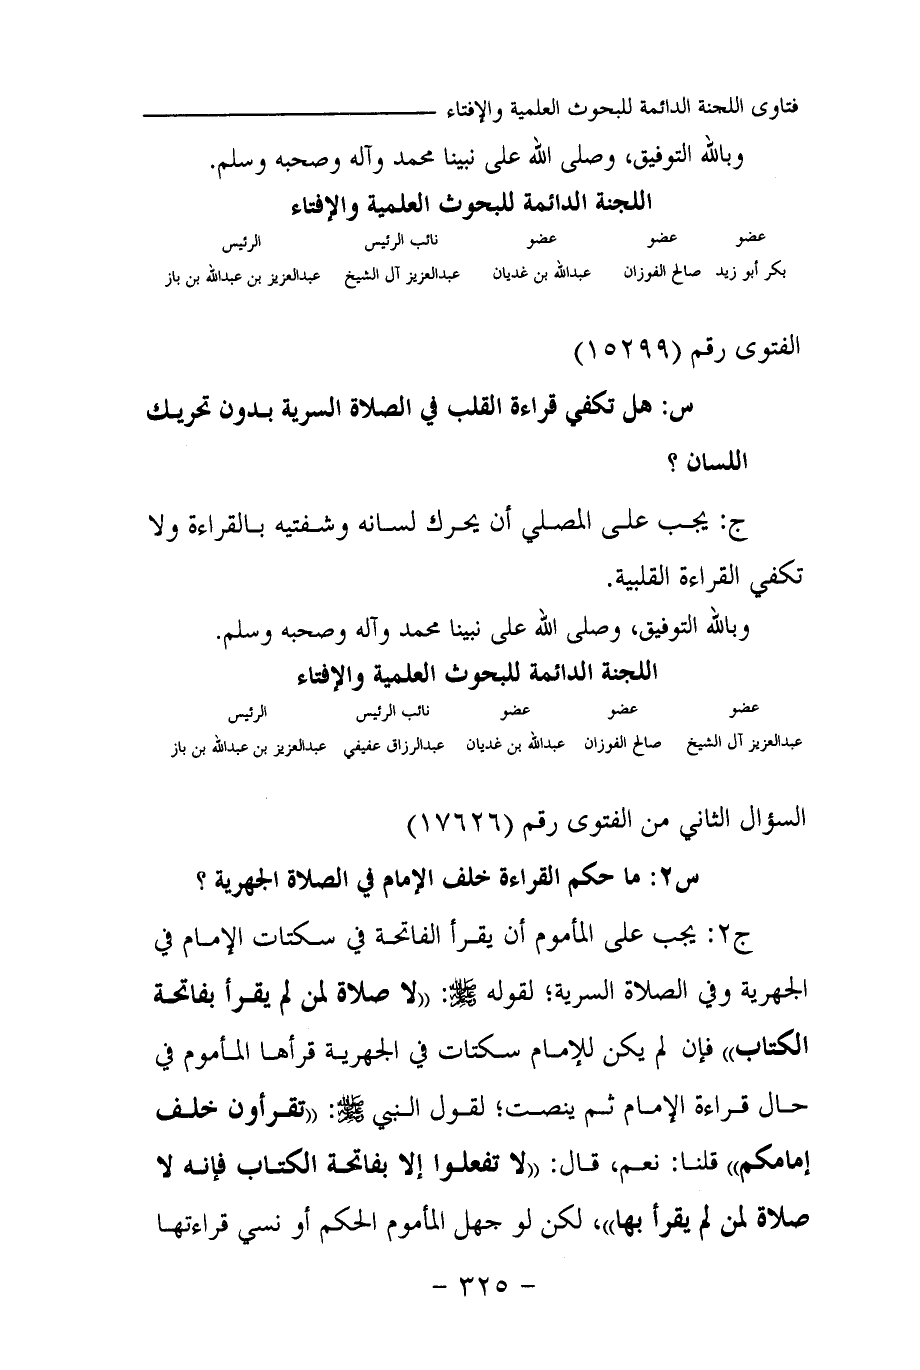 فتاوى اللجنة الدائمة للبحوث العلمية والإفتاء
وبالله التوفيق، وصلى الله على نبينا محمد وآله وصحبه وسلم.
اللجنة الدائمة للبحوث العلمية والإفتاء
عضو عضو عضو نائب الرئيس الرئيس
بكر أبو زيد صالح الفوزان عبدالله بن غديان عبدالعزيز آل الشيخ عبدالعزيز بن عبدالله بن باز
الفتوى رقم (١٥٢٩٩)
س: هل تكفي قراءة القلب في الصلاة السرية بدون تحريك
اللسان ؟
ج: يجب على المصلي أن يحرك لسانه وشفتيه بالقراءة ولا
تكفي القراءة القلبية.
وبالله التوفيق، وصلى الله على نبينا محمد وآله وصحبه وسلم.
اللجنة الدائمة للبحوث العلمية والإفتاء
عضو عضو عضو نائب الرئيس الرئيس
عبدالعزيز آل الشيخ صالح الفوزان عبدالله بن غديان عبدالرزاق عفيفي عبدالعزيز بن عبدالله بن باز
السؤال الثاني من الفتوى رقم (١٧٦٢٦)
س٢: ما حكم القراءة خلف الإمام في الصلاة الجهرية ؟
ج٢: يجب على المأموم أن يقرأ الفاتحة في سكتات الإمام في
الجهرية وفي الصلاة السرية؛ لقوله ﷺ: ((لا صلاة لمن لم يقرأ بفاتحة
الكتاب)) فإن لم يكن للإمام سكتات في الجهرية قرأها المأموم في
حال قراءة الإمام ثم ينصت؛ لقول النبي ﷺ: ((تقرأون خلف
إمامكم)) قلنا: نعم، قال: ((لا تفعلوا إلا بفاتحة الكتاب فإنه لا
صلاة لمن لم يقرأ بها))، لكن لو جهل المأموم الحكم أو نسي قراءتها
- ٣٢٥ -